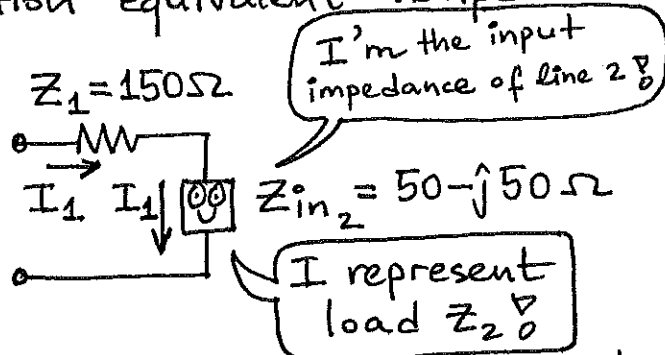 equivalent
I'm the input
impedance of line 2!
Z₁=150Ω
I₁ I₁
Zin₂ = 50-j50Ω
I represent
load Z₂!